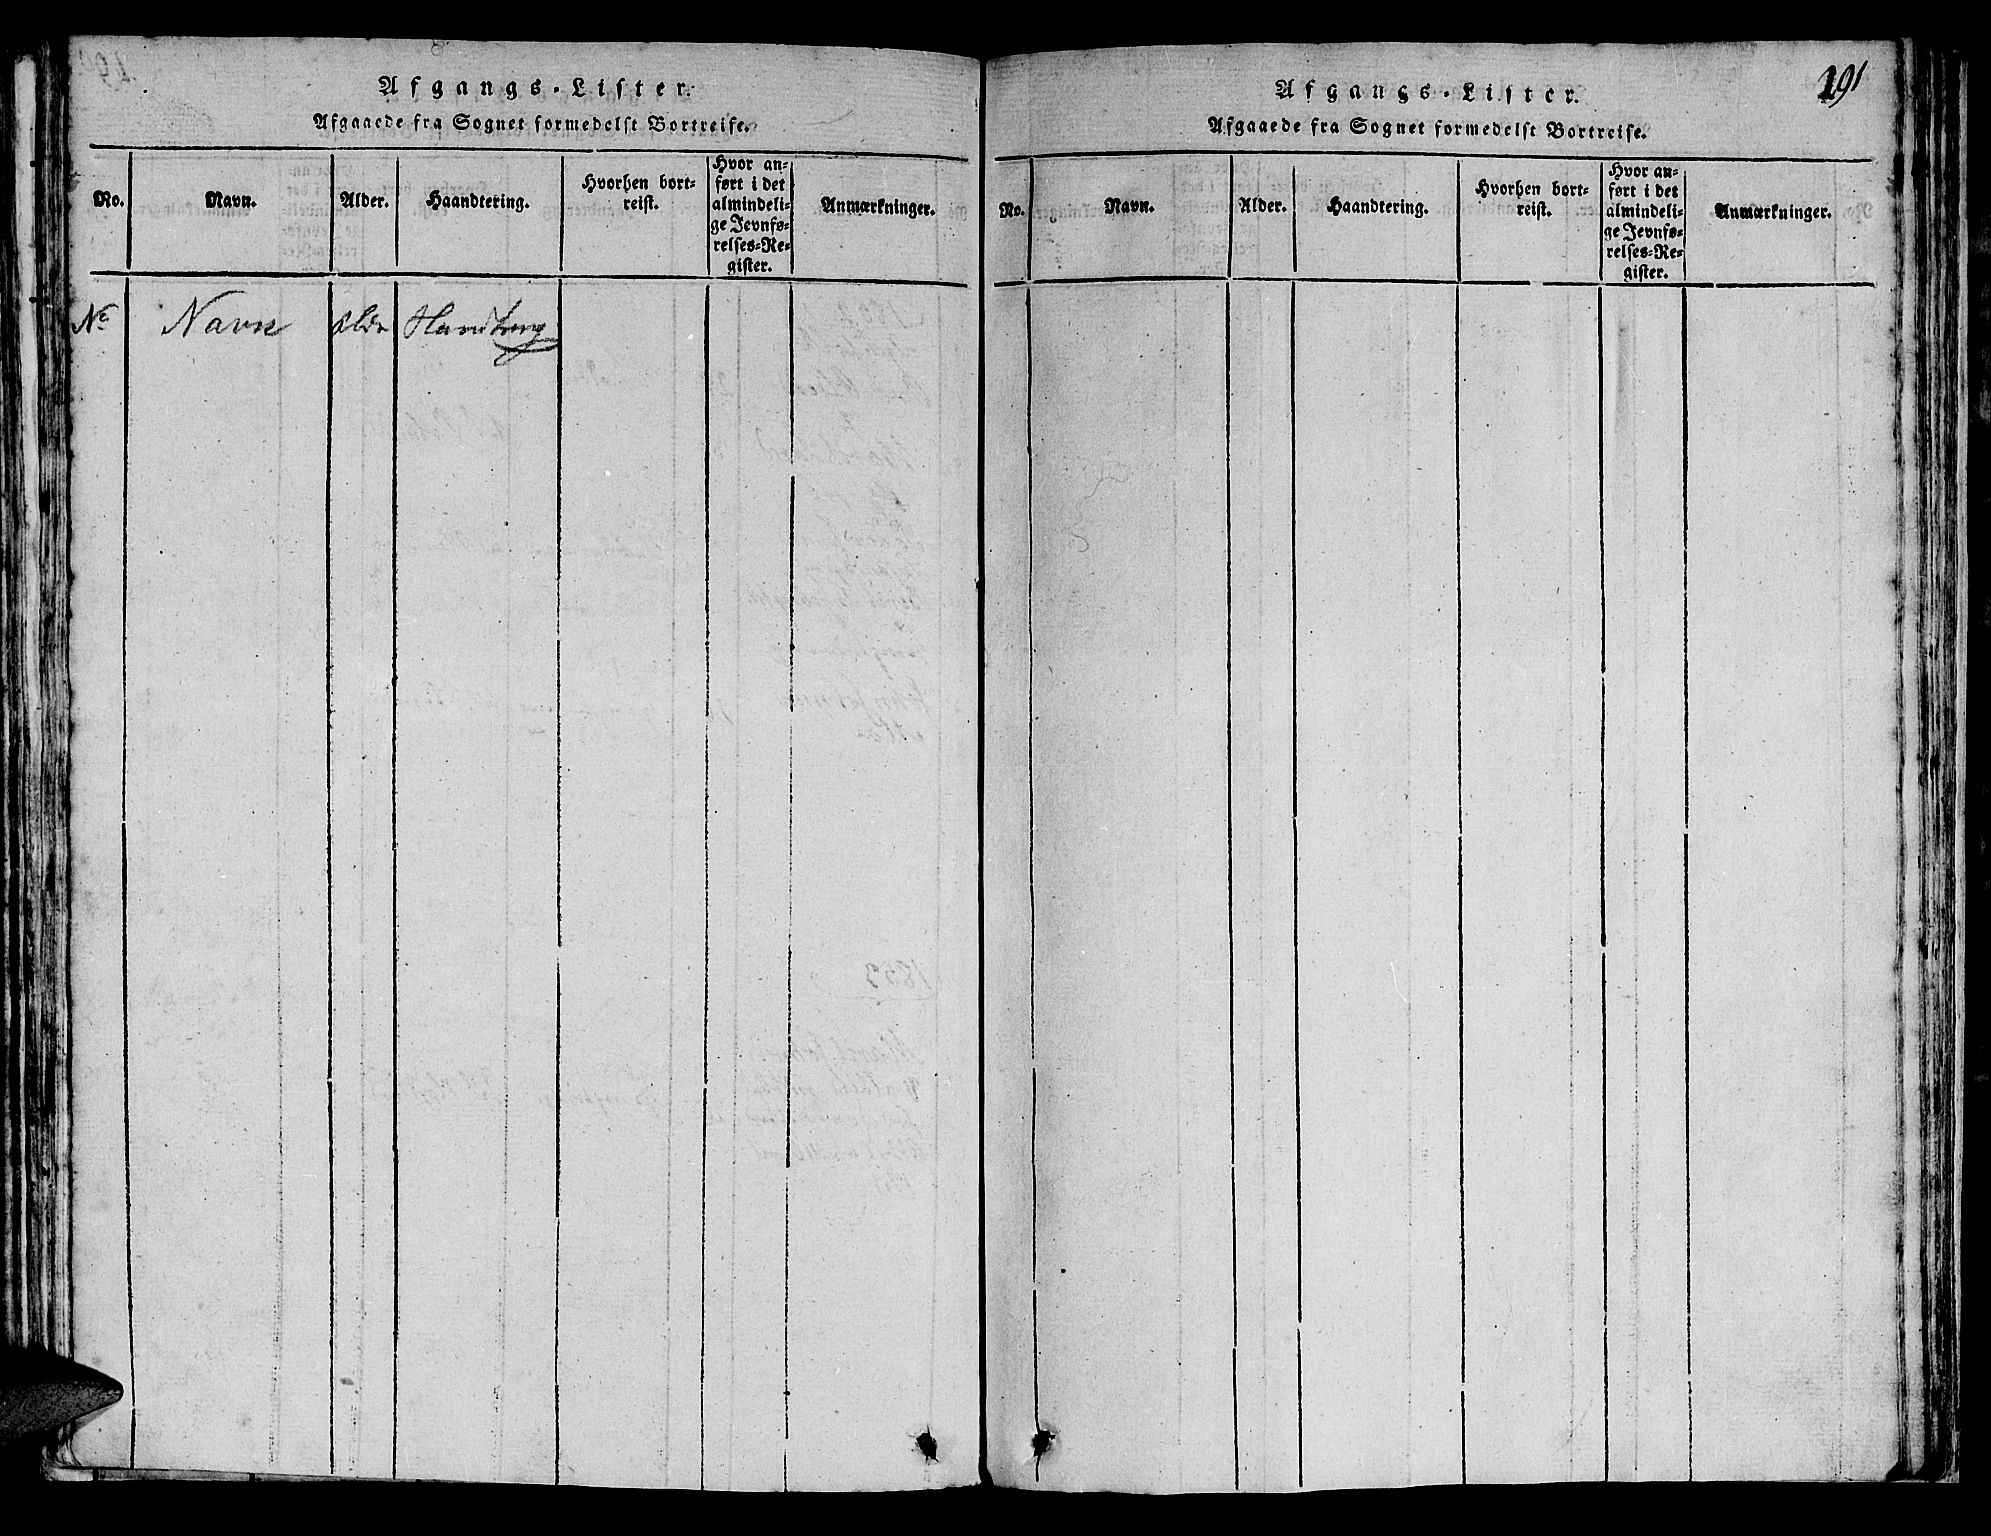 Afgangs-Lister.
Afgaaede fra Sognet formedelst Bortreise.
No.
Navn.
Alder.
Haandtering.
Hvorhen bort-
reist.
Hvor an-
ført i det
almindeli-
ge Jevnfø-
relses-Re-
gister.
Anmærkninger.
No Navn Alder
191
Afgangs-Lister.
Afgaaede fra Sognet formedelst Bortreise.
No.
Navn.
Alder.
Haandtering.
Hvorhen bort-
reist.
Hvor an-
ført i det
almindeli-
ge Jevnfø-
relses-Re-
gister.
Anmærkninger.